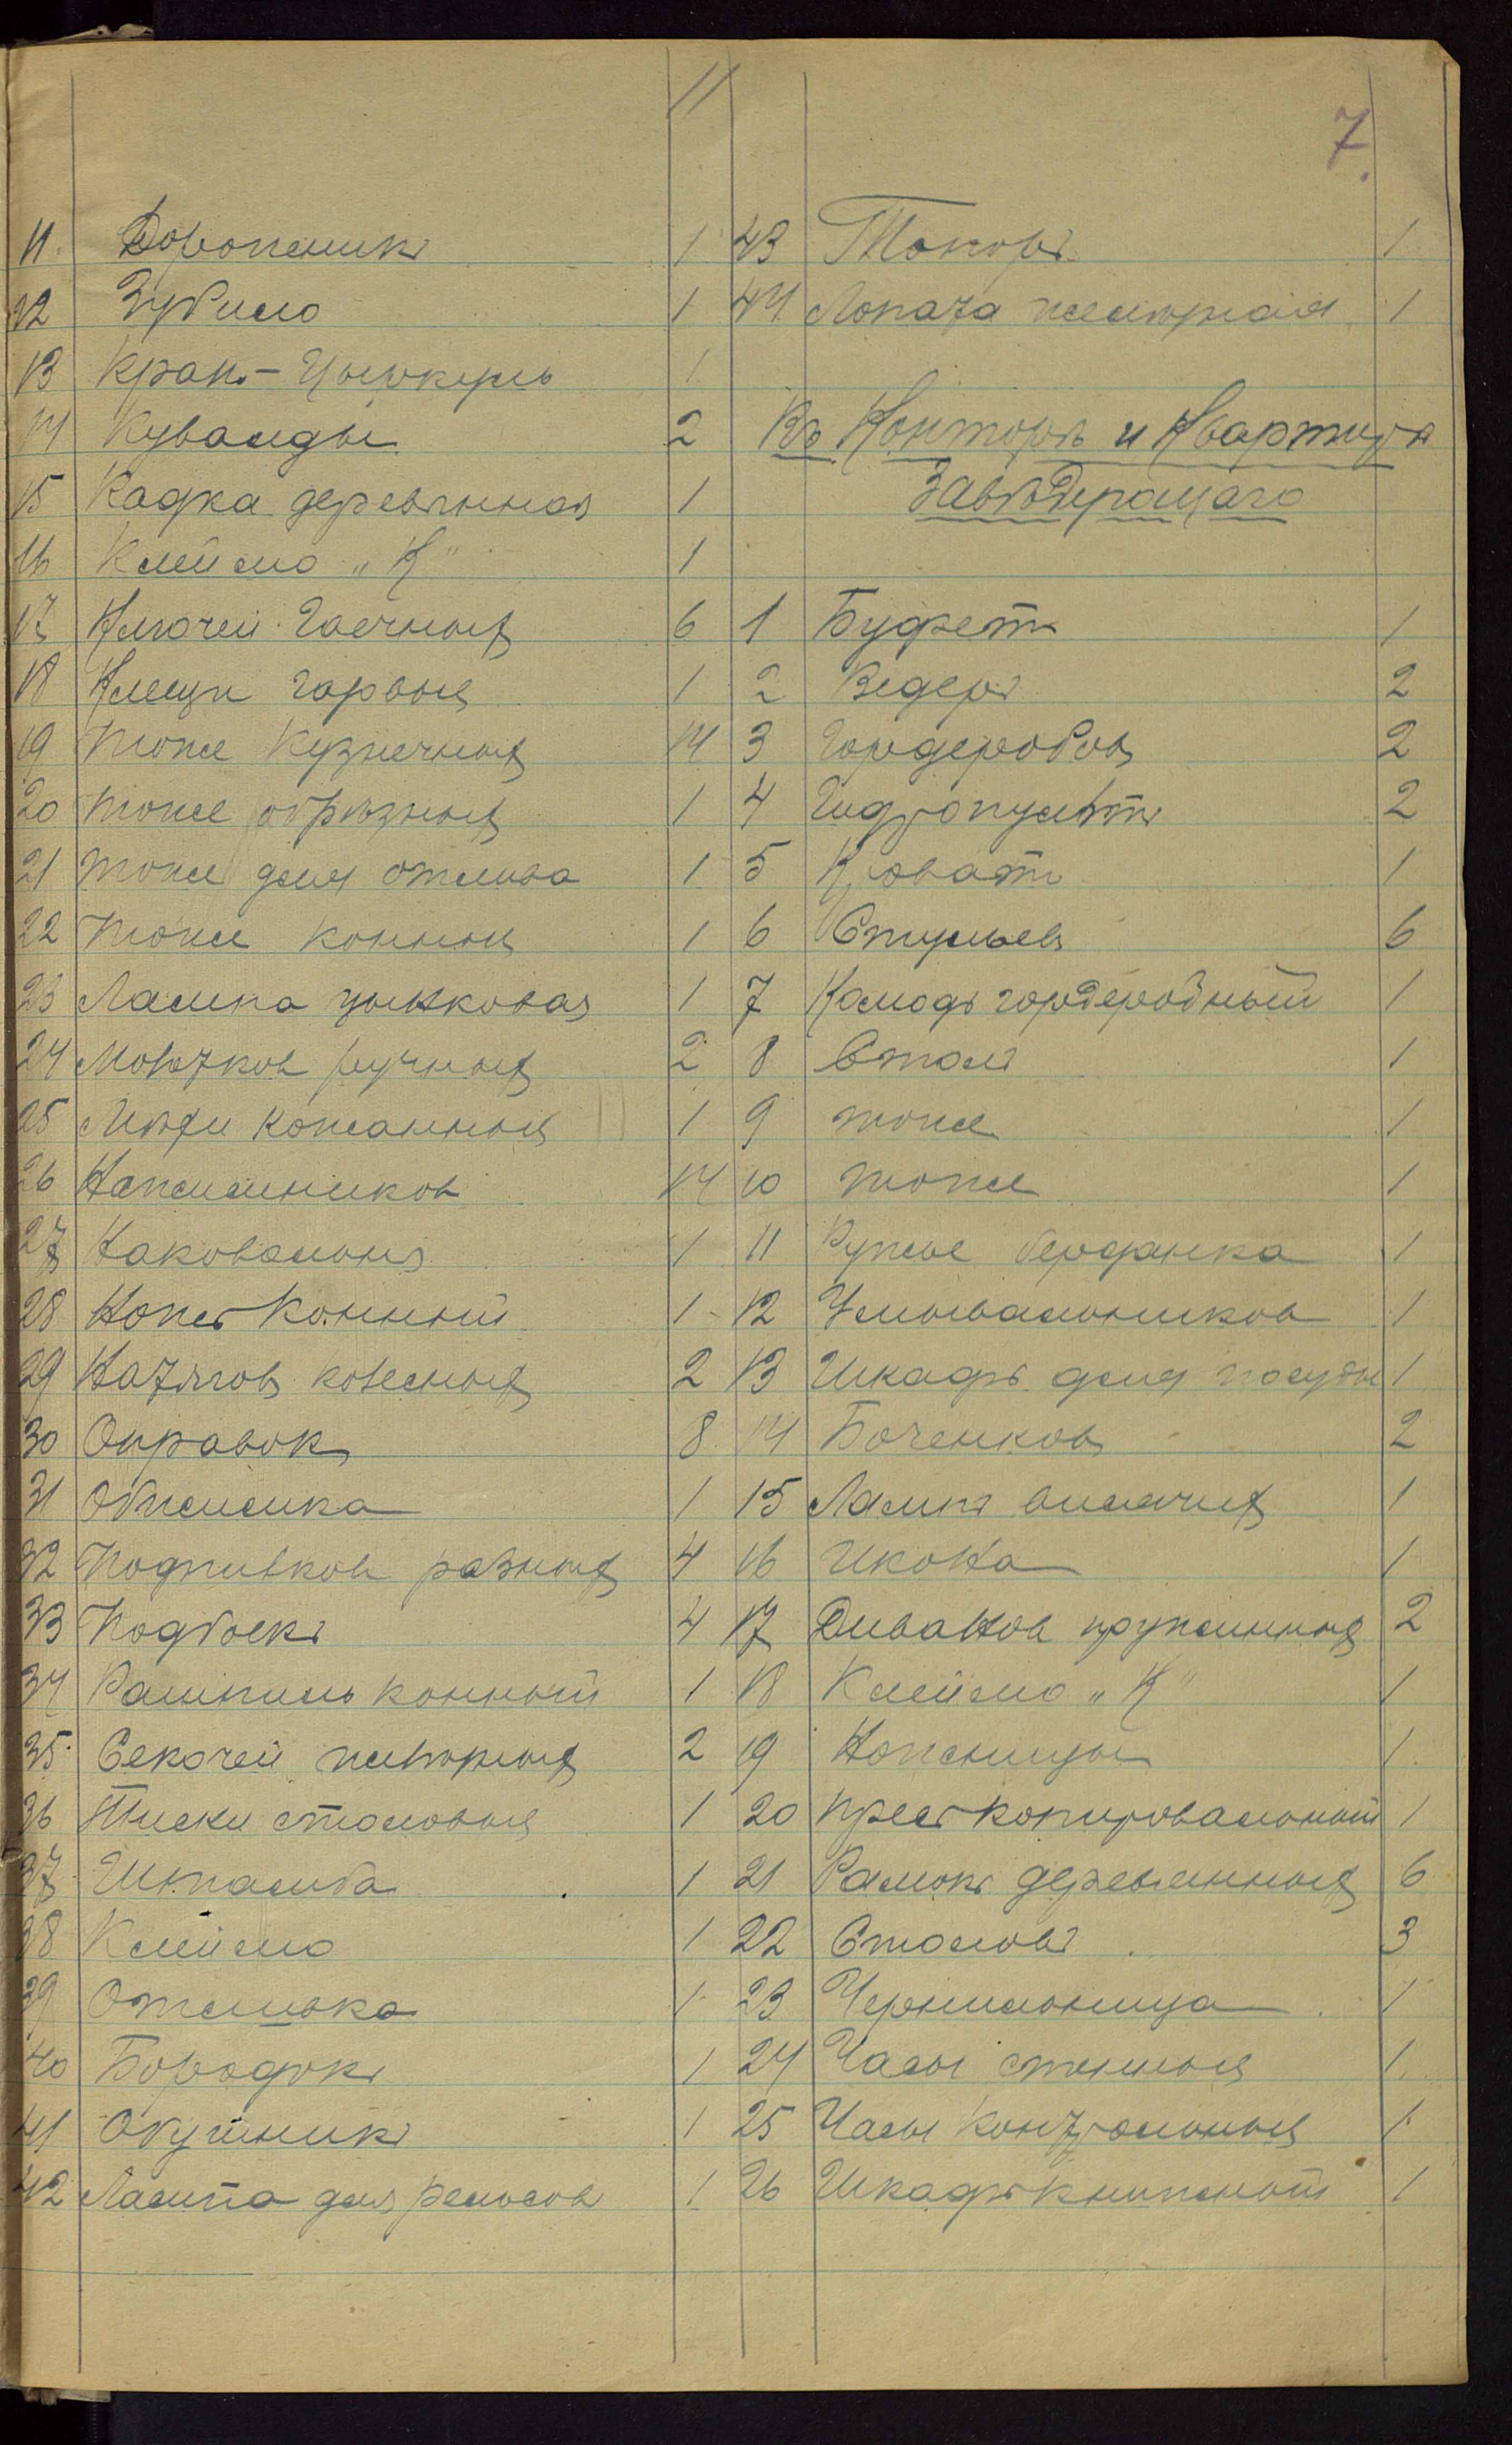 11
7.
11. Дорожникъ 1
12 Зубило 1
13 Кранъ-Цыркуль 1
14 Кувалды 2
15 Кадка деревянная 1
16 Клеймо „К" 1
17 Ключей Гаечныхъ 6
18 Клещи 1
19 тоже Кузнечныхъ 14
20 тоже обрѣзныхъ 1
21 тоже для отлива 1
22 тоже конныя 1
23 Лампа цынковая 1
24 Молотковъ ручныхъ 2
25 Мѣхи кожанныя 1
26 14
27 Наковальня 1
28 Ножъ Конный 1
29 колесныхъ 2
30 Оправокъ 8
31 Обжимка 1
32 разныхъ 4
33 Подбоекъ 4
34 Рашпиль конный 1
35 Секачей 2
36 Тиски столовыя 1
37 1
38 Клеймо 1
39 1
40 Бородокъ 1
41 1
42 Лампа для 1
43 Топоръ 1
44 Лопата желѣзная 1
Въ Конторѣ и Квартирѣ
Завѣдующаго
1 Буфетъ 1
2 Ведеръ 2
3 Гордеробовъ 2
4 Гидропультъ 2
5 Кровать 1
6 Стульевъ 6
7 Камодъ гордеробный 1
8 Столъ 1
9 тоже 1
10 тоже 1
11 Ружье берданка 1
12 Умывальниковъ 1
13 Шкафъ для посуды 1
14 Боченковъ 2
15 Лампъ висячихъ 1
16 Икона 1
17 Дивановъ пружинныхъ 2
18 Клеймо „К" 1
19 Ножницы 1
20 Пресъ копировальный 1
21 Рамокъ деревянныхъ 6
22 Столовъ 3
23 Чернильница 1
24 Часы стѣнныя 1
25 Часы контрольныя 1
26 Шкафъ книжный 1